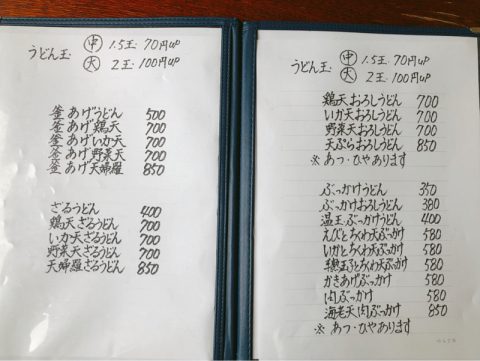 うどん玉 ㊥ 1.5玉 70円up
㊅ 2玉 100円up
釜あげうどん 500
釜あげ鶏天 700
釜あげいか天 700
釜あげ野菜天 700
釜あげ天婦羅 850
ざるうどん 400
鶏天ざるうどん 700
いか天ざるうどん 700
野菜天ざるうどん 700
天婦羅ざるうどん 850
うどん玉 ㊥ 1.5玉 70円up
大 2玉 100円up
鶏天おろしうどん 700
いか天おろしうどん 700
野菜天おろしうどん 700
天ぷらおろしうどん 850
※ あつ・ひやあります
ぶっかけうどん 350
ぶっかけおろしうどん 380
温玉ぶっかけうどん 400
えびとちくわ天ぶっかけ 580
いかとちくわ天ぶっかけ 580
とちくわ天ぶっかけ 580
かきあげぶっかけ 580
肉ぶっかけ 580
海老天肉ぶっかけ 850
※ あつ・ひやあります